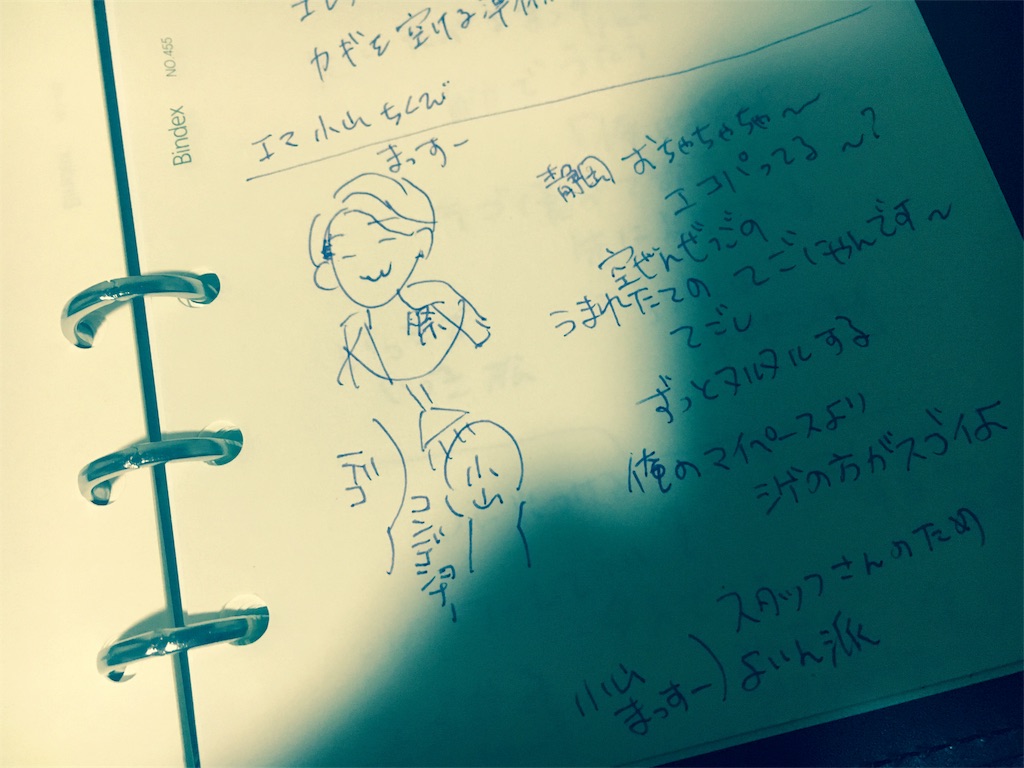 カギを空ける準備
Bindex
NO.455
エマ 小山 ちくび
まっすー
静岡 おちゃちゃちゃ〜
エコパってる〜?
空ぜんぜだの
うまれたての てごにゃんです〜
てごし
ずっとヌルヌルする
俺のマイペースより
シゲの方がスゴイよ
小山
スタッフさんのため
小山
まっすー
よいん派